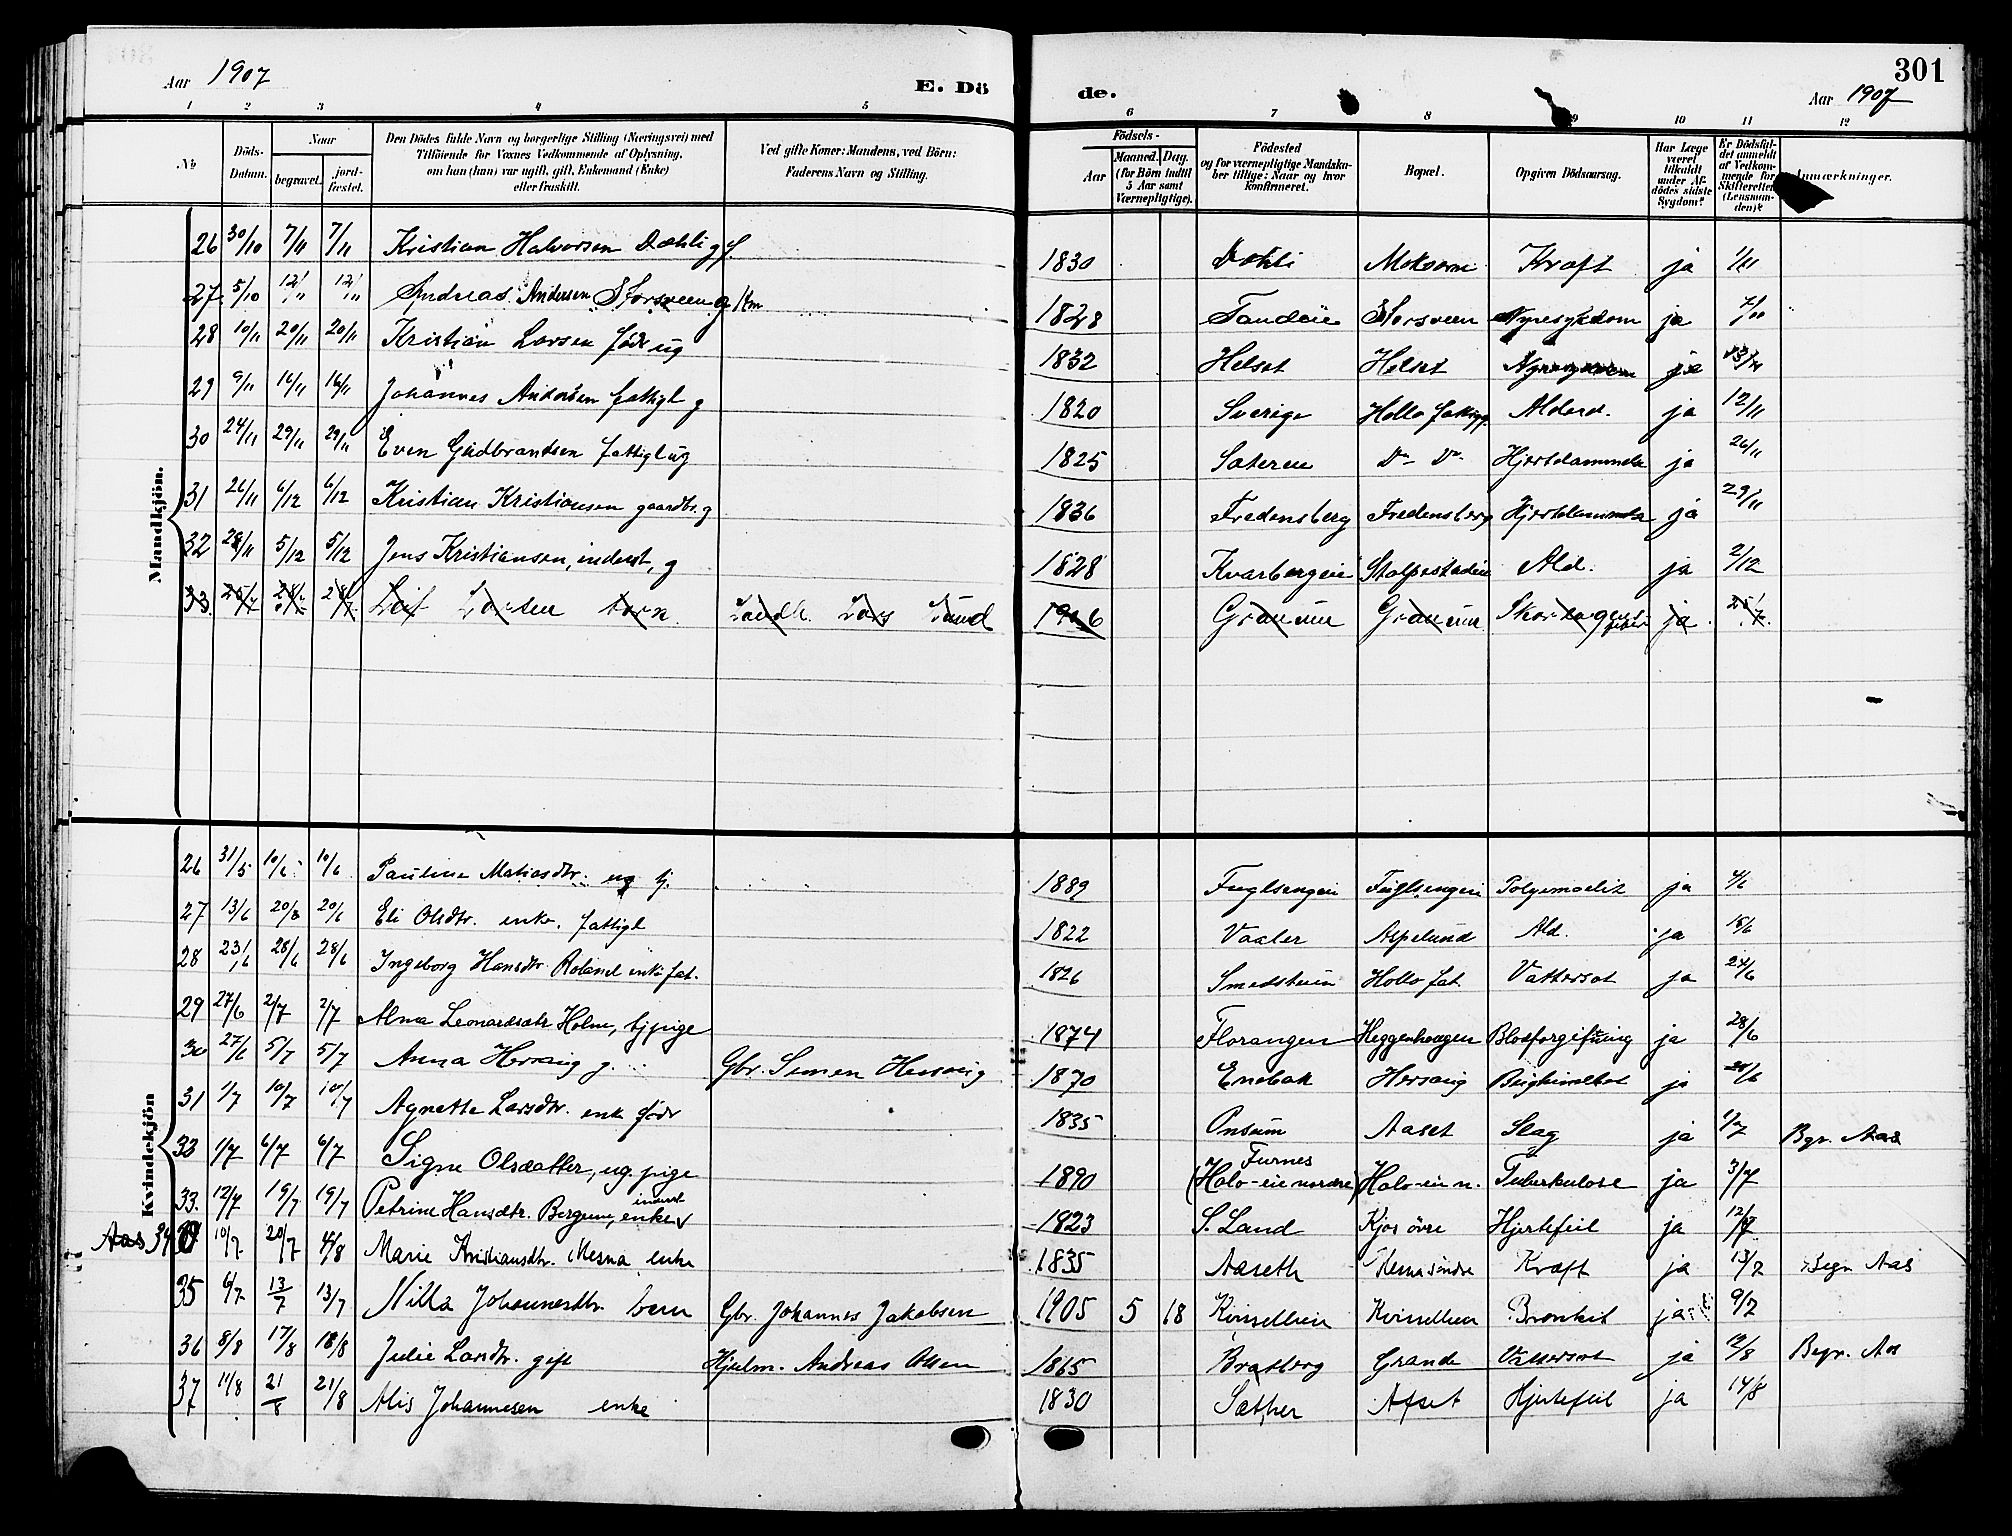 Aar 1907
E. Dö
de.
301
Aar 1907
1 2 3 4 5 6 7 8 9 10 11 12
No
Döds-Datum.
Naar
begravet.
jord-fæstet.
Den Dödes fulde Navn og borgerlige Stilling (Næringsvei) med
Tilföiende for Voxnes Vedkommende af Oplysning,
om han (hun) var ugift, gift, Enkemand (Enke)
eller fraskilt.
Ved gifte Koner: Mandens, ved Börn:
Faderens Navn og Stilling.
Födsels-
Aar
Maaned. Dag.
(for Börn indtil
5 Aar samt
Værnepligtige).
Födested
og for værnepligtige Mandska-
ber tillige: Naar og hvor
konfirmeret.
Bopæl.
Opgiven Dödsaarsag.
Har Læge
været
tilkaldt
under Af-
dödes sidste
Sygdom?
Er Dödsfal-
det anmeldt
af Vedkom-
mende for
Skifteretten
(Lensman-
den)?
Anmærkninger.
Mandkjön.
26 30/10 7/11 7/11 Kristian Halvorsen Dæhli 1830 Dæhli Kræft ja 1/11
27 5/10 12/11 12/11 Andreas Andersen Storsveen g Km 1828 Storsveen Nyresykdom ja 7/11
28 10/11 20/11 20/11 Kristian Larsen födr ug 1832 Helset Helset ja
29 9/11 16/11 16/11 Johannes Andersen fattigl g 1820 Sverige Hollo fattigg. Alderd. ja 12/11
30 24/11 29/11 29/11 Even Gudbrandsen fattigl ug 1825 Sateren Do Do Hjertelammelse ja 26/11
31 26/11 6/12 6/12 Kristian Kristiansen gaardbr. g 1836 Fredensberg Fredensberg Hjertelammelse ja 29/11
32 28/11 5/12 5/12 Jens Kristiansen, inderst, g 1828 Kvarbergeie Stolpestadeie Ald. ja 2/12
33. Leif Larsen barn. Landh. Lars Lund 1906 Granum Granum Skarlagensfeber ja
Kvindekjön
26 31/5 10/6 10/6 Pauline Matiasdtr. ug tj. 1889 Fuglsengen Fuglsengen ja 4/6
27 13/6 20/6 Eli Olsdtr. enke. fattigl 1822 Vaaler Aspelund Ald. ja 15/6
28 23/6 28/6 28/6 Ingeborg Hansdtr. Roland enke fat. 1826 Smedstuen Hollo fat. Vattersot ja 24/6
29 27/6 2/7 2/7 Alma Leonardsdtr Holm, tjpige 1874 Florangen Heggenhaugen Blodforgiftning ja 28/6
30 27/6 5/7 5/7 Anna Hersaug g. Gbr. Simen Hersaug 1870 Enebak Hersaug ja
31 1/7 10/7 10/7 Agnette Larsdtr. enke födr 1835 Onsum Aaset Slag ja 1/7 Bgr. Aas
32 1/7 6/7 6/7 Signe Olsdatter, ug. pige 1890 Furnes
(Holo-eie nordre) Holo-eie n. Tuberkulose ja 3/7
33. 12/7 19/7 19/7 Petrine Hansdtr. Bergum, enke 1823 S. Land Kjos övre Hjertefeil ja 12/7
Aas 34 10/7. 20/7 4/8 Marie Kristiansdtr. Mesna enke 1835 Aaseth Mesna söndre Kræft ja 13/7 Begr Aas
35 6/7 13/7 13/7 Nilla Johannesdtr. barn Gbr. Johannes Jakobsen 1905 5 18 Kvisellien Kvisellien Bronkit ja 9/7
36 8/8 17/8 18/8 Julie Larsdtr. gift Hjulm. Andreas Olsen 1865 Braberg Grande Vattersot ja Begr. Aas
37 11/8 21/8 21/8 Alis Johannesen enke 1830 Sæther Afset Hjertefeil ja 14/8